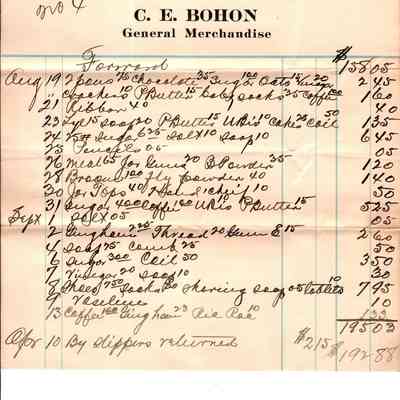 No 4
C. E. BOHON
General Merchandise
Forward $158 05
Aug 19 2 pens 70 Chocolate 35 Sugar 100 Oats 20 2 45
" Crackers 10 P Butter 15 baby socks 35 Coffee 100 1 60
21 Ribbon 40 40
23 Lye 15 soap 20 P Butter 15 Cakes 25 Oil 50 1 35
24 25# Sugar 625 Salt 10 Soap 10 6 45
25 05
26 Meal 65 Jar Gums 20 B Powder 35 1 20
28 Brogue 100 Fly powder 40 1 40
30 Jar Tops 40 Hand'chief 10 50
31 Sugar 400 Coffee 100 P Butter 15 5 25
Sept 1 Salt 05 05
2 Gingham 225 Thread 20 Gum 15 2 60
4 Soap 25 Comb 25 50
6 Sugar 300 Oil 50 3 50
7 Vinegar 20 Soap 10 30
8 Shoes 750 Socks 20 Shaving soap 05 tablets 10 7 95
9 Vaseline 10
13 Coffee 100 Gingham 23 Ric Rac 10 1 33
195 03
Apr 10 By slippers returned $2 15 $192 88